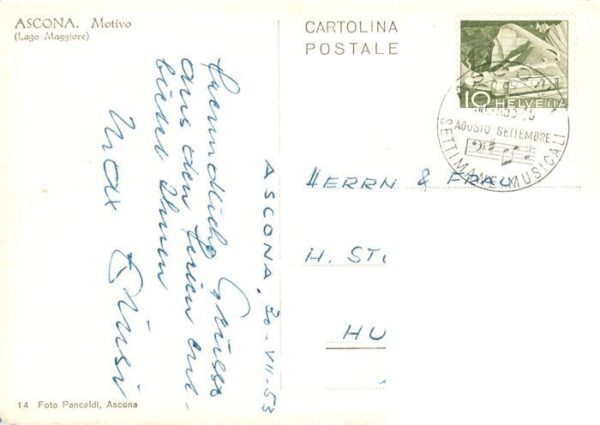 ASCONA. Motivo
(Lago Maggiore)
CARTOLINA
POSTALE
10 HELVETIA
AGOSTO SETTEMBRE
SETTIMANE MUSICALI
ASCONA, 30-VII-53
Freundliche Grüsse
aus den Ferien ent-
bietet Ihnen
Max
HERRN & FRAU
H. ST
HU
14 Foto Pancaldi, Ascona